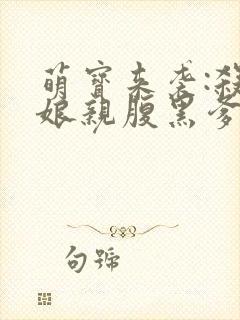 萌寶來襲:殺
娘親腹黑爹
句號